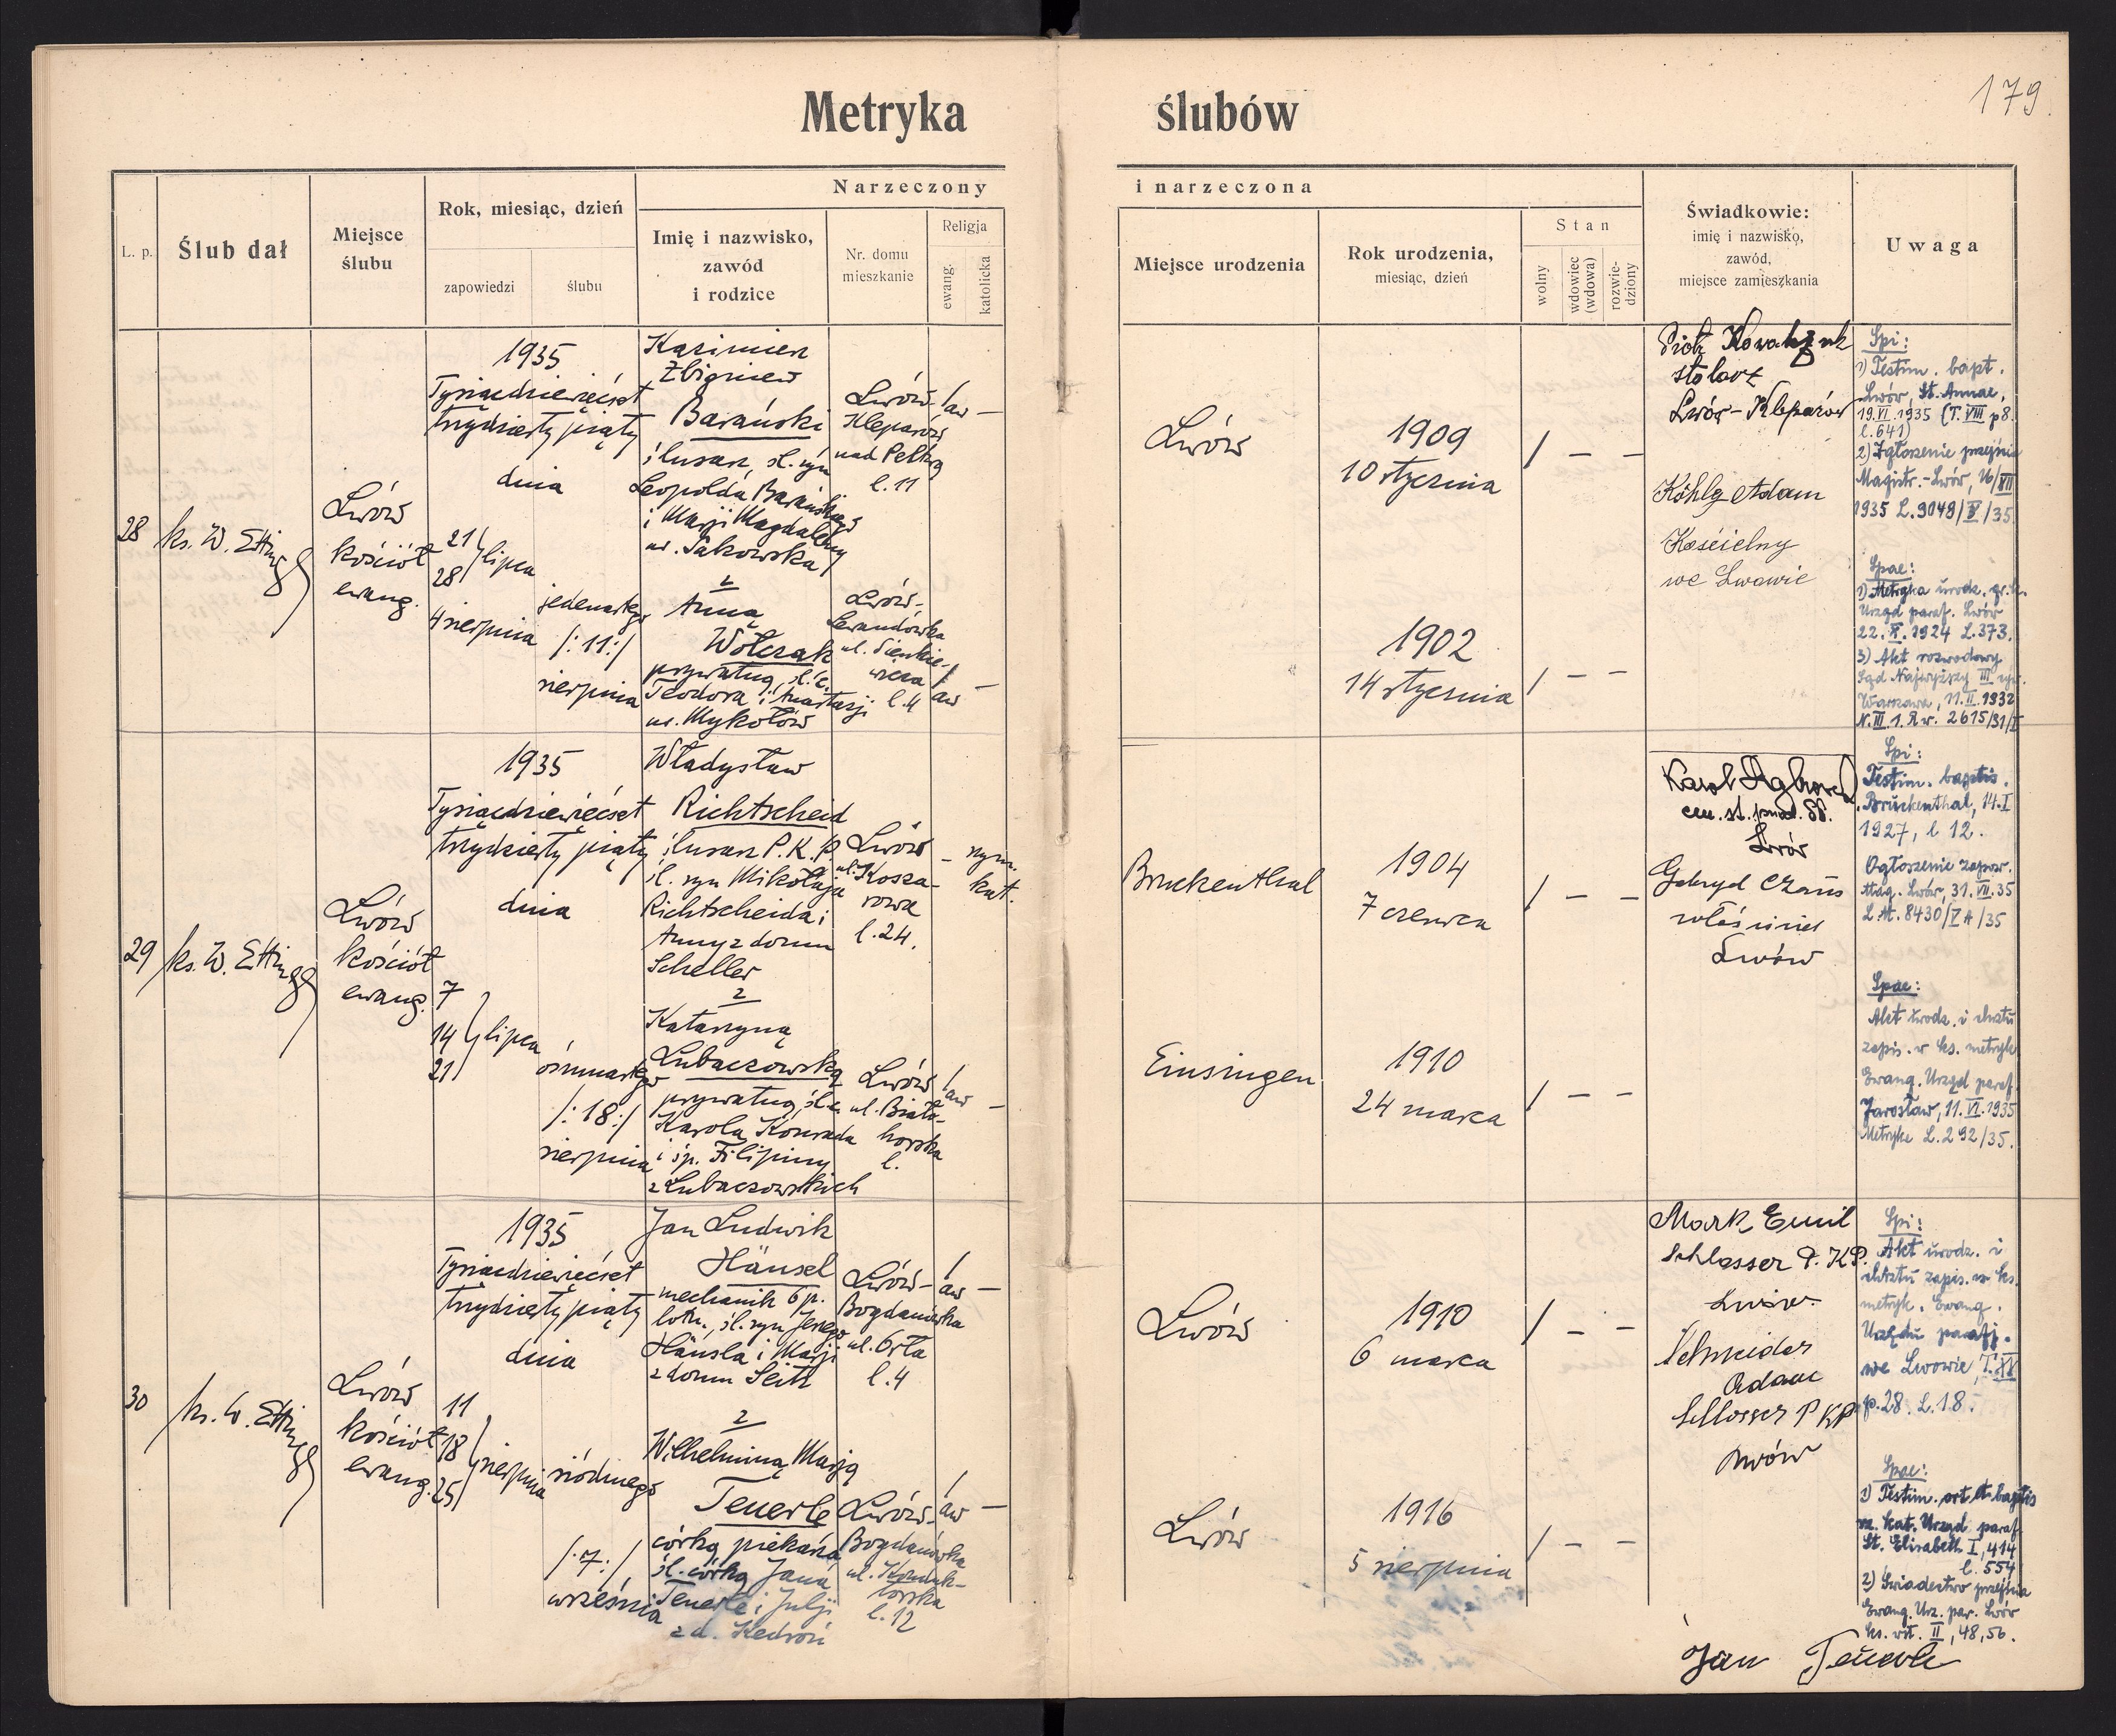 179.
Metryka ślubów
L. p.
Ślub dał
Miejsce
ślubu
Rok, miesiąc, dzień
zapowiedzi
ślubu
Narzeczony
i narzeczona
Imię i nazwisko,
zawód
i rodzice
Nr. domu
mieszkanie
Religja
ewang.
katolicka
Miejsce urodzenia
Rok urodzenia,
miesiąc, dzień
Stan
wolny
wdowiec
(wdowa)
rozwie-
dziony
Świadkowie:
imię i nazwisko,
zawód,
miejsce zamieszkania
Uwaga
28
ks. W. Etting
Lwów
kościół
ewang.
1935
Tysiącdziewięćset
trzydziesty piąty
dnia
21
28
lipca
4 sierpnia
jedenastego
/:11:/
sierpnia
Kazimierz
Zbigniew
Barański
ślusarz, śl. syn
Leopolda Barańskiego
i Marji Magdaleny
ur. Sakowska
z
Anną
Wołczak
prywatną, śl. c.
Teodora i Anastazji
ur. Mykołów
Lwów-
Kleparów
nad Pełtwą
l. 11
Lwów-
Lewandówka
ul. Sienkie-
wicza
l. 4
aw –
aw –
Lwów
1909
10 stycznia
/ – –
1902
14 stycznia
/ – –
Piotr Kowalczuk
stolarz
Lwów-Kleparów
Köhle Adam
Kościelny
we Lwowie
Spi:
1) Testim. bapt.
Lwów, St. Annae,
19.VI.1935 (T. VIII p 8.
l. 641)
2) Zgłoszenie przejścia
Magistr.-Lwów, 16/VII
1935 L. 9049/V/35
Spae:
1) Metryka urodz. gr. k.
Urząd paraf. Lwów
22. X. 1924 L. 373.
3) Akt rozwodowy
Sąd Najwyższy III
Warszawa, 11.II.1932
N. III. 1. R w. 2615/31/I
29
ks. W. Etting
Lwów
kościół
ewang.
1935
Tysiącdziewięćset
trzydziesty piąty
dnia
7
14
21
lipca
ośmnastego
/:18:/
sierpnia
Władysław
Richtscheid
ślusarz P.K.P.
śl. syn Mikołaja
Richtscheida i
Anny z domu
Scheller
z
Katarzyną
Lubaczowską
prywatną, śl. c.
Karola Konrada
i śp. Filipiny
z Lubaczowskich
Lwów
ul. Kosza-
rowa
l. 24.
Lwów
ul. Biało-
horska
l.
– rym.
kat.
aw –
Bruckenthal
1904
7 czerwca
/ – –
Einsingen
1910
24 marca
/ – –
Karol
Lwów
Gabryel
Lwów
Spi:
Testim. baptis.
Brückenthal, 14.I
1927, l 12.
Ogłoszenie zapow.
Mag. Lwów, 31.VII.35
L. M. 8430/V A/35
Spae:
Akt urodz. i chrztu
zapis. w ks. metryk
Ewang. Urząd paraf.
Jarosław, 11. VI. 1935
Metryke L. 292/35.
30
ks. W. Etting
Lwów
kościół
ewang.
1935
Tysiącdziewięćset
trzydziesty piąty
dnia
11
18
25
sierpnia
siódmego
/:7:/
września
Jan Ludwik
Hänsel
mechanik 6 p.
lotn., śl. syn Jerzego
Hänsla i Marji
z domu Seitz
z
Wilhelminą Marją
Teuerle
córką piekarza
śl. córką Jana
Teuerle i Julji
z d. Kedroń
Lwów-
Bogdanówka
ul. Orla
l. 4
Lwów-
Bogdanówka
ul. Konduk-
torska
l. 12
aw –
aw –
Lwów
1910
6 marca
/ – –
Lwów
1916
5 sierpnia
/ – –
Mark Emil
Schlosser P.KP.
Lwów.
Schneider
Adam
Schlosser P KP
Lwów
Spi:
Akt urodz. i
chrztu zapis. w ks.
metryk. Ewang.
Urzędu parafj.
we Lwowie, T. XV
p. 28. L. 18.
Spae:
1) Testim. ort. et baptis
rz. kat. Urząd paraf.
St. Elisabeth I, 414
l. 554
2) Świadectwo przejścia
Ewang. Urz. par. Lwów
ks. wst. II, 48, 56.
Jan Teuerle